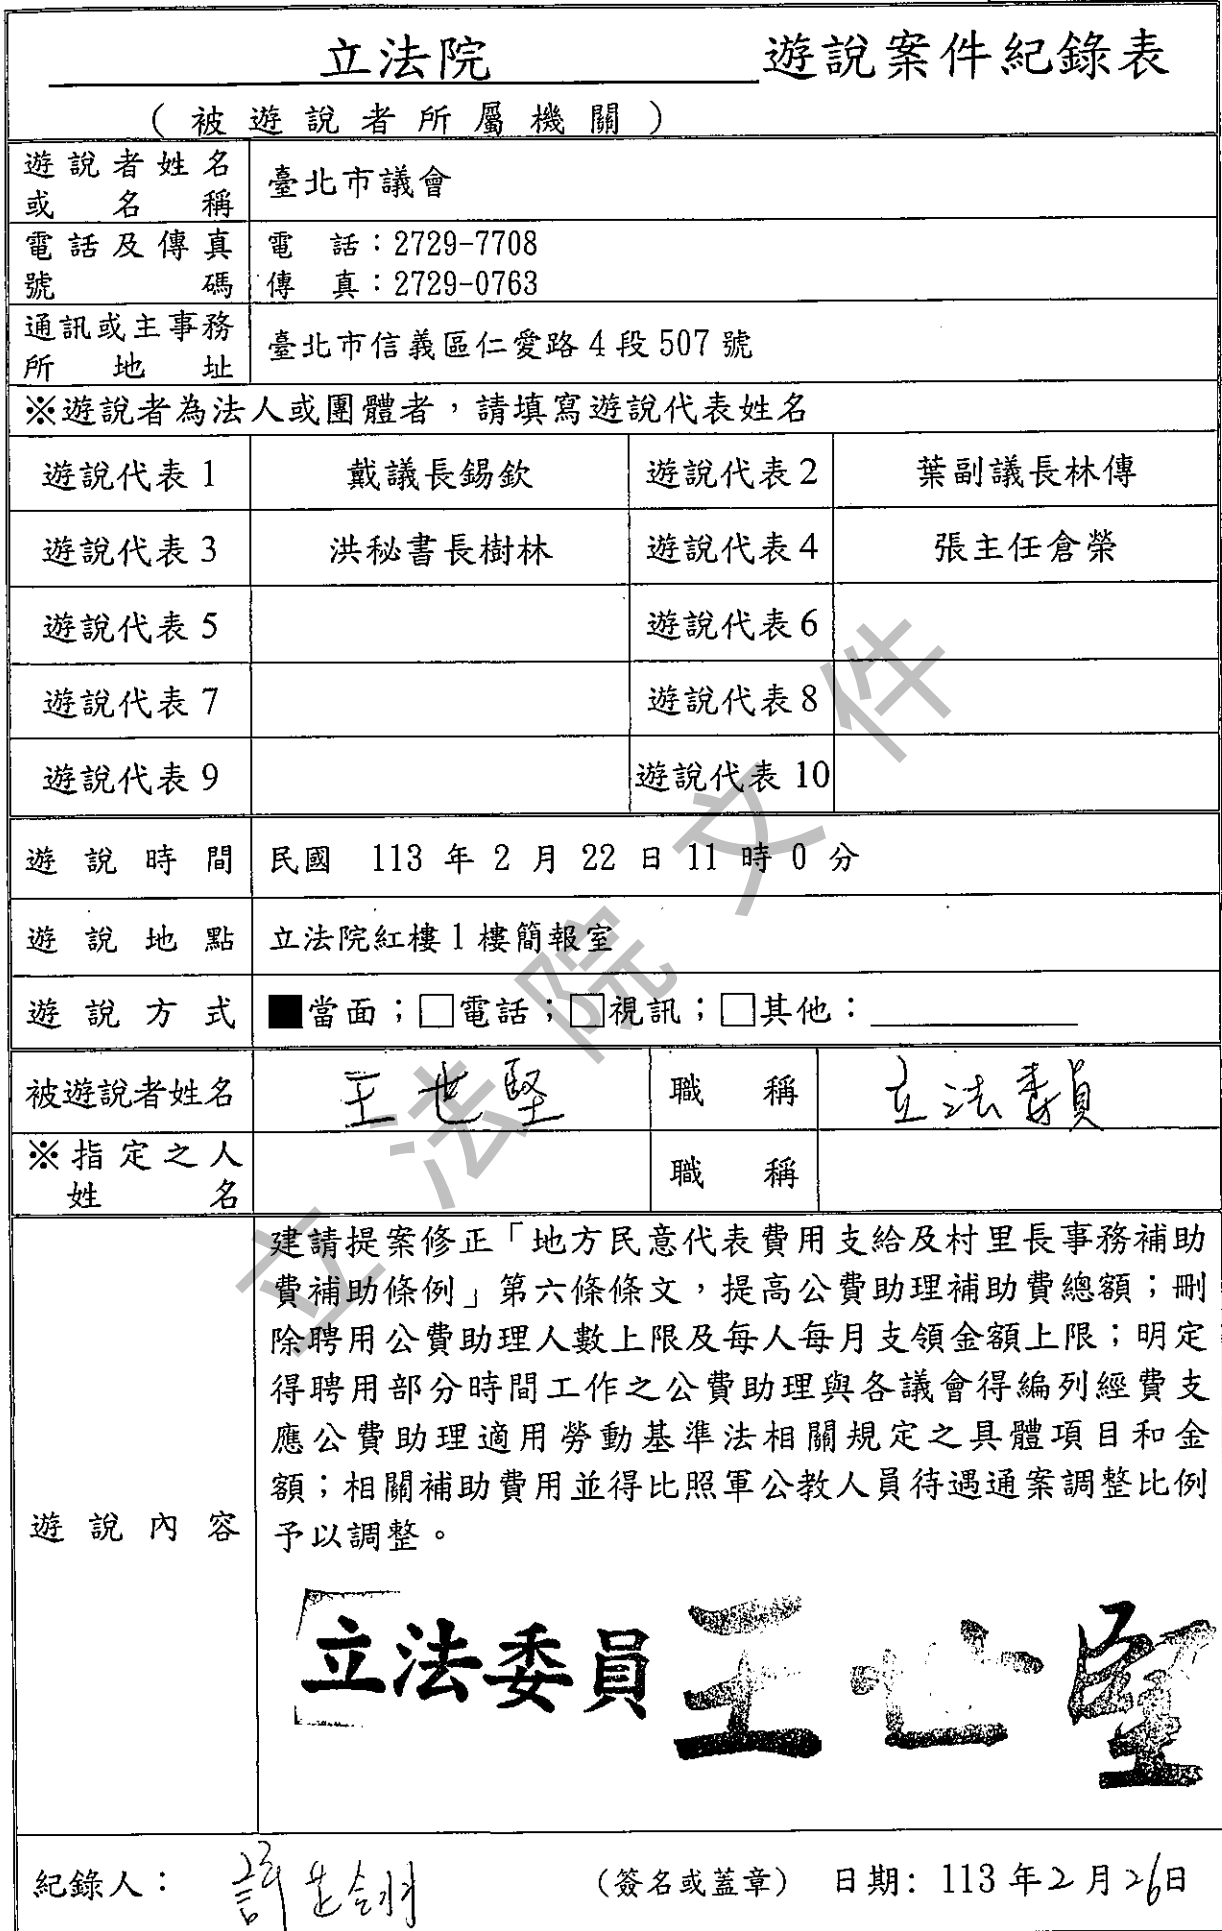 立法院 遊說案件紀錄表
（被遊說者所屬機關）
遊說者姓名或名稱 臺北市議會
電話及傳真號碼 電話：2729-7708
傳真：2729-0763
通訊或主事務所地址 臺北市信義區仁愛路4段507號
※遊說者為法人或團體者，請填寫遊說代表姓名
遊說代表1 戴議長錫欽 遊說代表2 葉副議長林傳
遊說代表3 洪秘書長樹林 遊說代表4 張主任倉榮
遊說代表5 遊說代表6
遊說代表7 遊說代表8
遊說代表9 遊說代表10
遊說時間 民國 113 年 2 月 22 日 11 時 0 分
遊說地點 立法院紅樓1樓簡報室
遊說方式 ■當面；□電話；□視訊；□其他：
被遊說者姓名 王世堅 職稱 立法委員
※指定之人姓名 職稱
遊說內容
建請提案修正「地方民意代表費用支給及村里長事務補助
費補助條例」第六條條文，提高公費助理補助費總額；刪
除聘用公費助理人數上限及每人每月支領金額上限；明定
得聘用部分時間工作之公費助理與各議會得編列經費支
應公費助理適用勞動基準法相關規定之具體項目和金
額；相關補助費用並得比照軍公教人員待遇通案調整比例
予以調整。
立法委員王世堅
紀錄人： （簽名或蓋章） 日期：113年2月26日
立法院文件